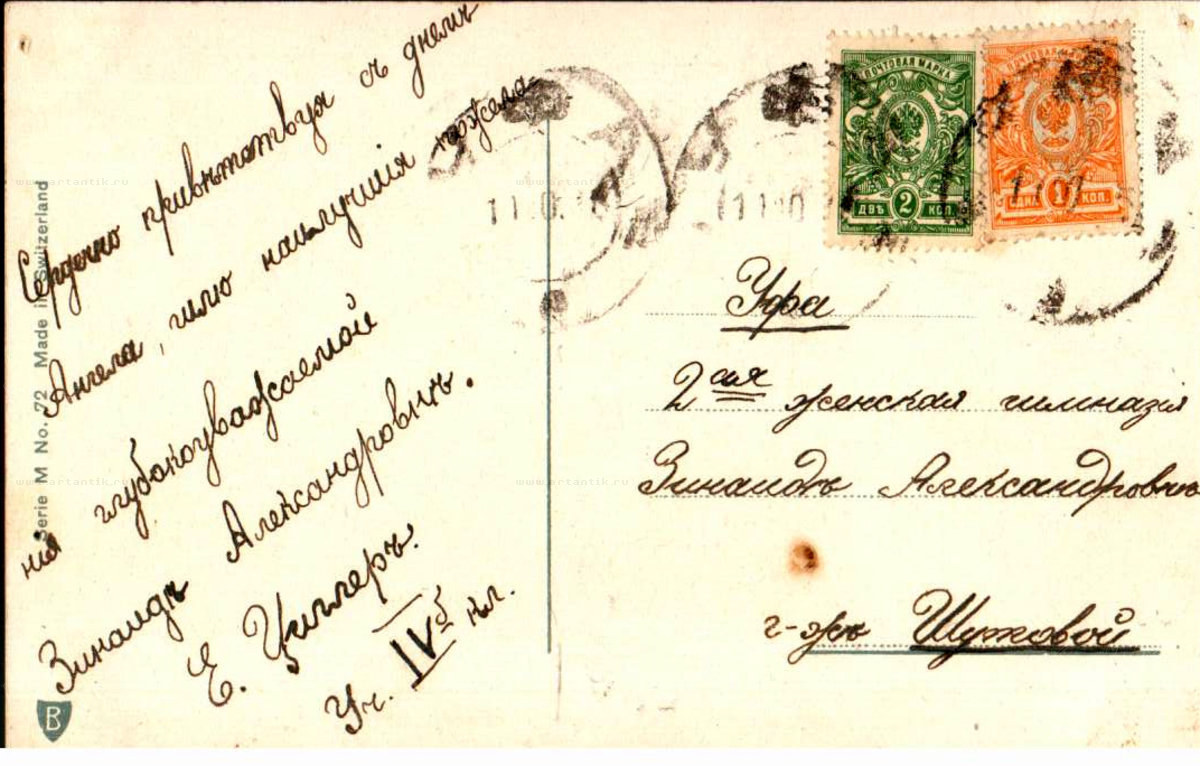 Сердечно привѣтствуя съ днемъ
Ангела, шлю наилучшія пожела-
нія глубокоуважаемой
Зинаидѣ Александровнѣ.
Е. Циглеръ.
Уч. IVᵇ кл.
Serie M No. 72 Made in Switzerland
B
ПОЧТОВАЯ МАРКА
ДВѢ 2 КОП.
ПОЧТОВАЯ МАРКА
ОДНА 1 КОП.
Уфа
2ая женская гимназія
Зинаидѣ Александровнѣ
г-жѣ Шутовой
www.artantik.ru
www.artantik.ru
www.artantik.ru
www.artantik.ru